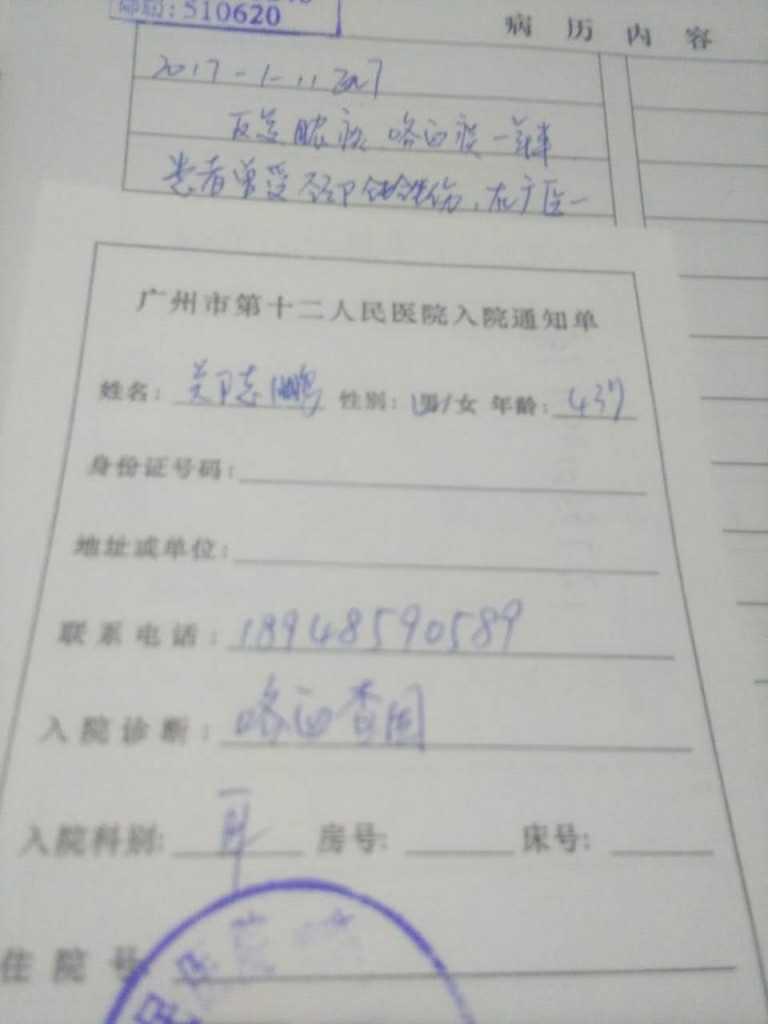 邮编:510620
病 历 内 容
2017-1-11
反复 咯血 一年
患者曾受 伤,在广医一
广州市第十二人民医院入院通知单
姓名: 志鹏 性别:男/女 年龄: 43岁
身份证号码:
地址或单位:
联系电话: 18948590589
入院诊断: 咯血查因
入院科别: 耳 房号: 床号:
住院号
民医院